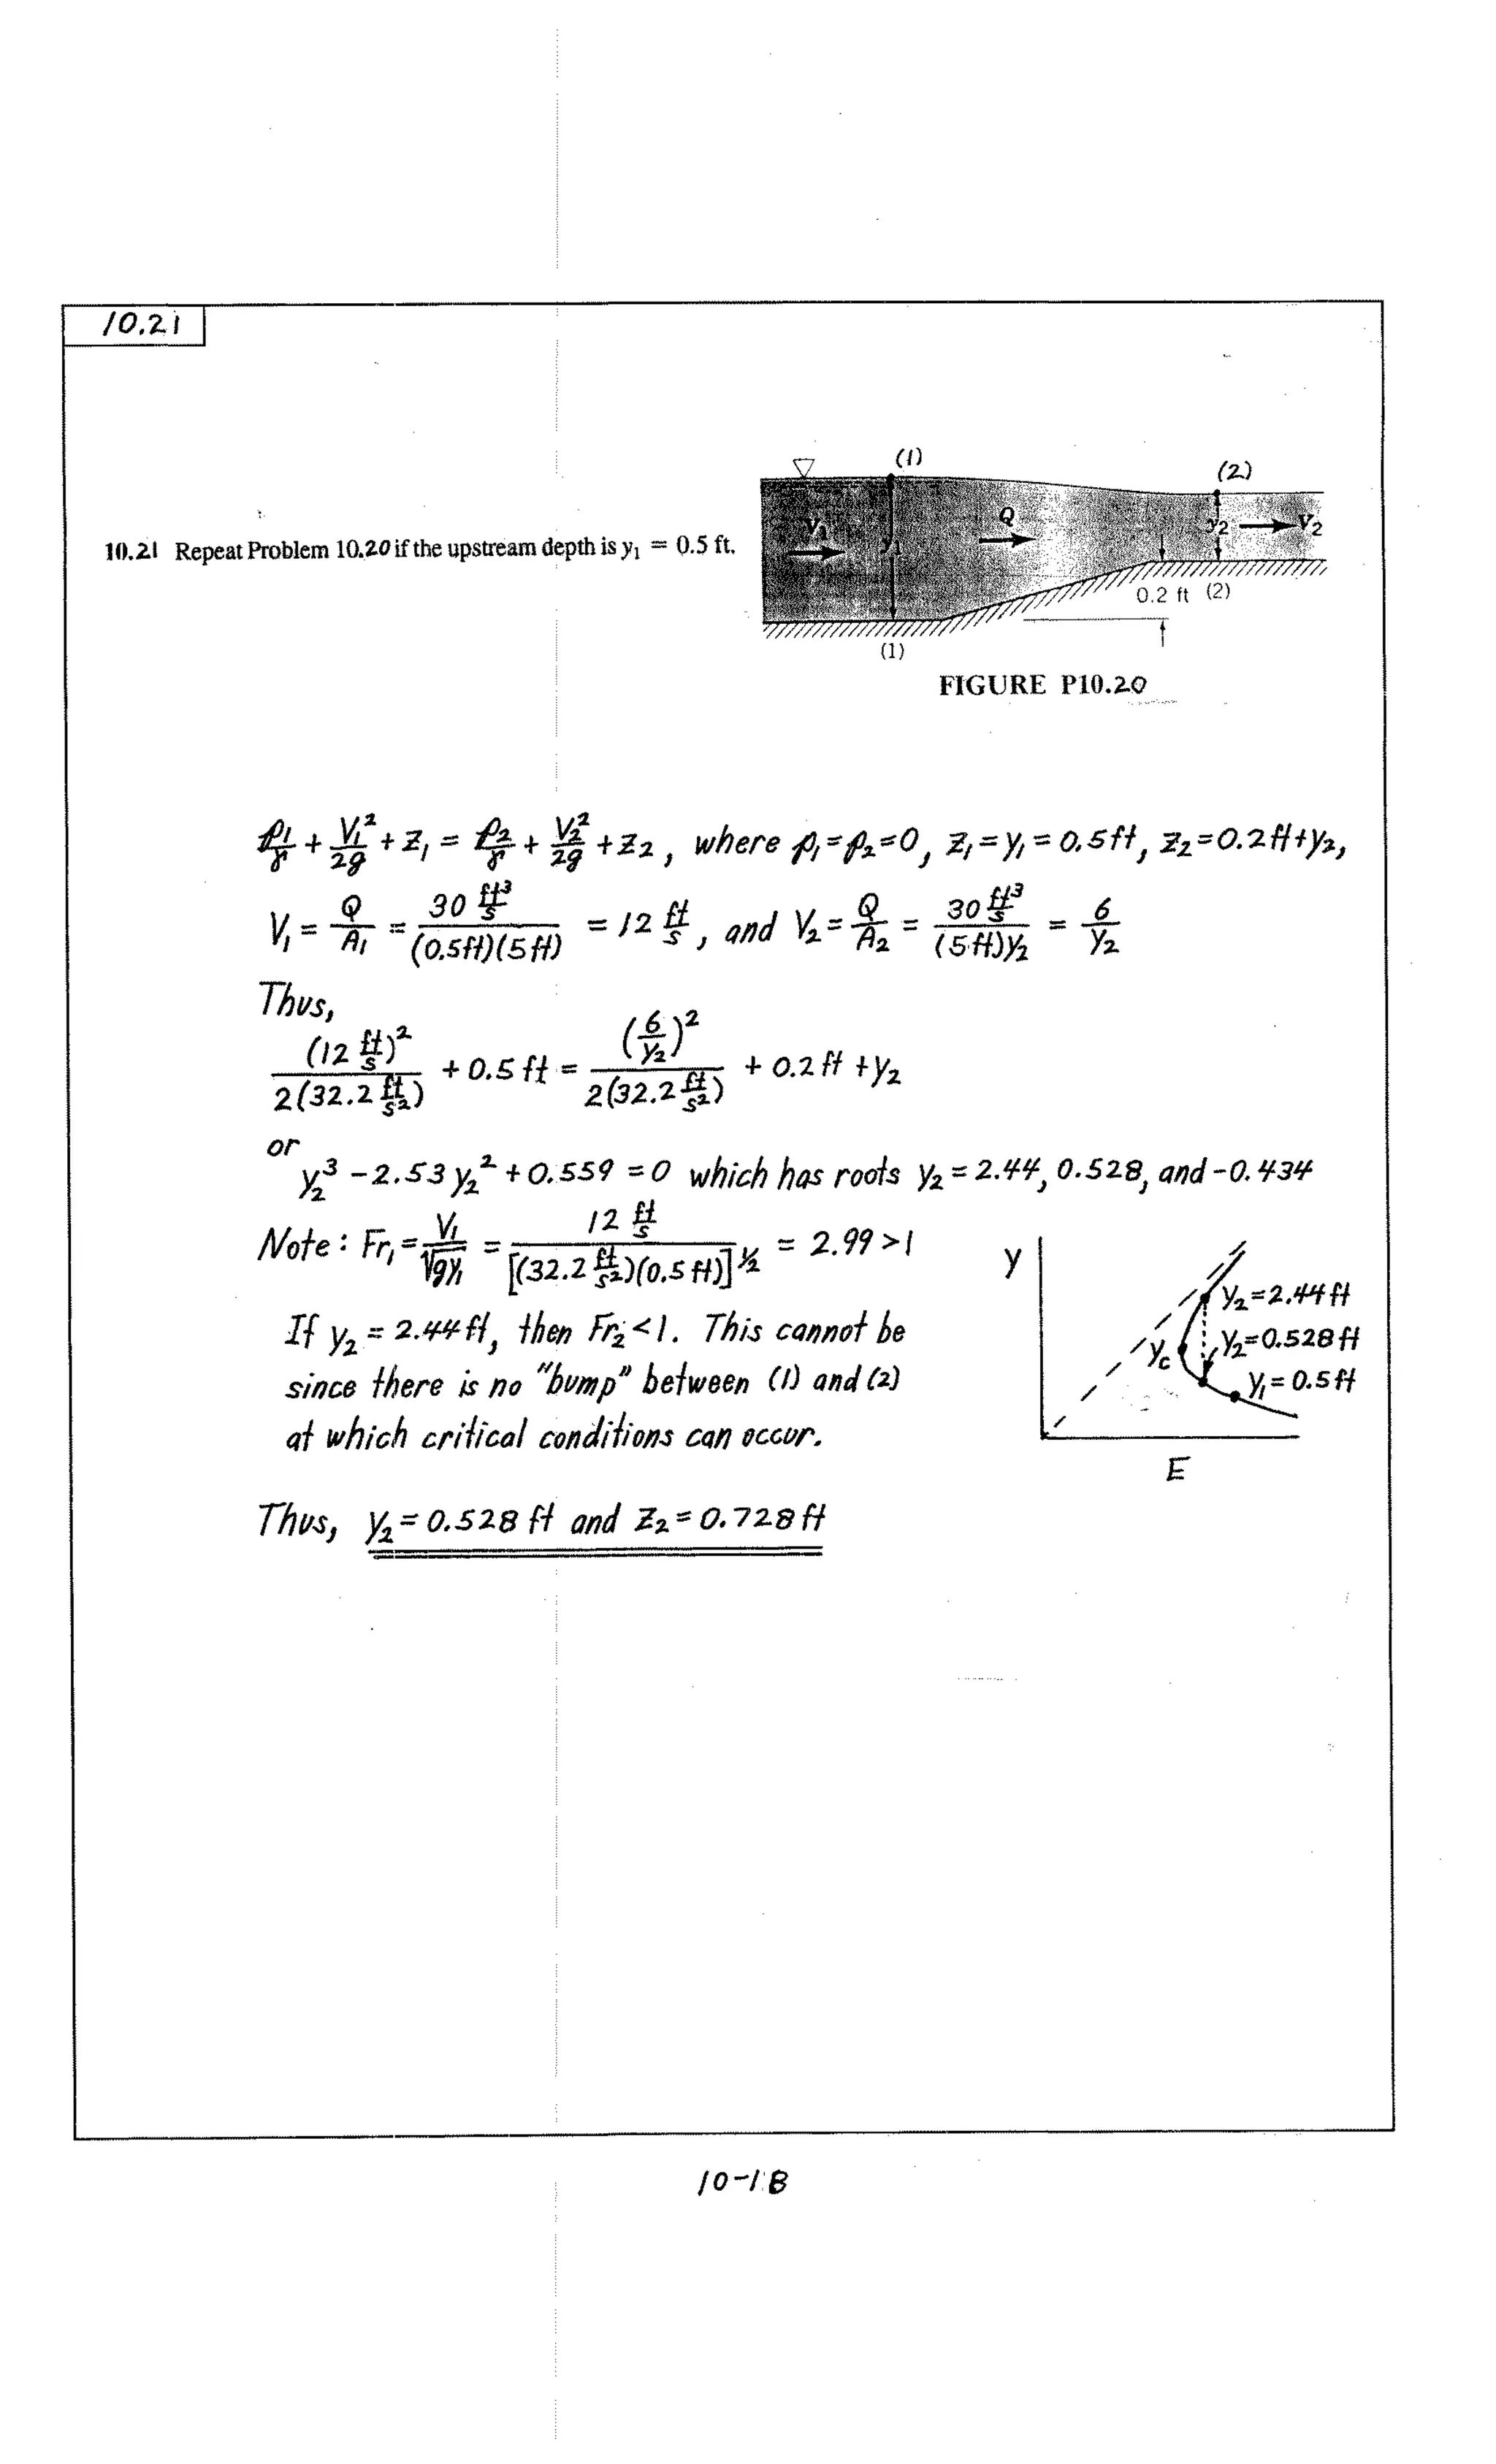 10.21
(1)
(2)
V1
y1
Q
y2
V2
10.21 Repeat Problem 10.20 if the upstream depth is y1 = 0.5 ft.
0.2 ft (2)
(1)
FIGURE P10.20
p1/γ + V1²/2g + z1 = p2/γ + V2²/2g + z2 , where p1=p2=0, z1=y1=0.5ft, z2=0.2ft+y2,
V1 = Q/A1 = 30 ft³/s / (0.5ft)(5ft) = 12 ft/s , and V2 = Q/A2 = 30 ft³/s / (5ft)y2 = 6/y2
Thus,
(12 ft/s)² / 2(32.2 ft/s²) + 0.5 ft = (6/y2)² / 2(32.2 ft/s²) + 0.2 ft + y2
or
y2³ - 2.53 y2² + 0.559 = 0 which has roots y2 = 2.44, 0.528, and -0.434
Note: Fr1 = V1/√gy1 = 12 ft/s / [(32.2 ft/s²)(0.5 ft)]^½ = 2.99 > 1
If y2 = 2.44 ft, then Fr2 < 1. This cannot be
since there is no "bump" between (1) and (2)
at which critical conditions can occur.
y
y2=2.44 ft
y2=0.528 ft
yc
y1=0.5 ft
E
Thus, y2 = 0.528 ft and z2 = 0.728 ft
10-18